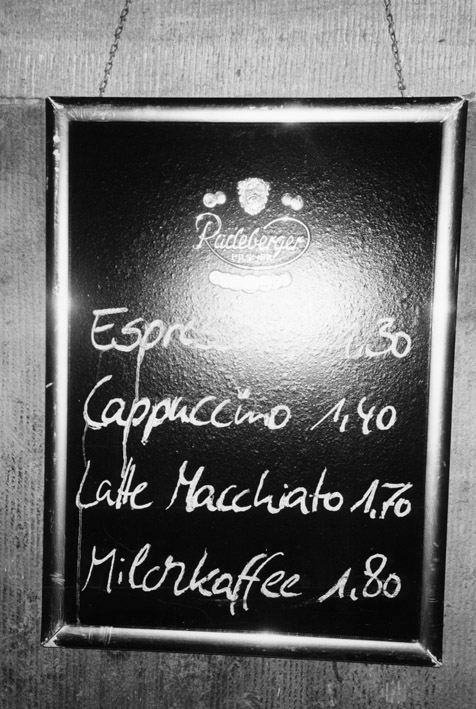 Radeberger
PILSNER
Espresso 1,30
Cappuccino 1,40
Latte Macchiato 1,70
Milchkaffee 1,80